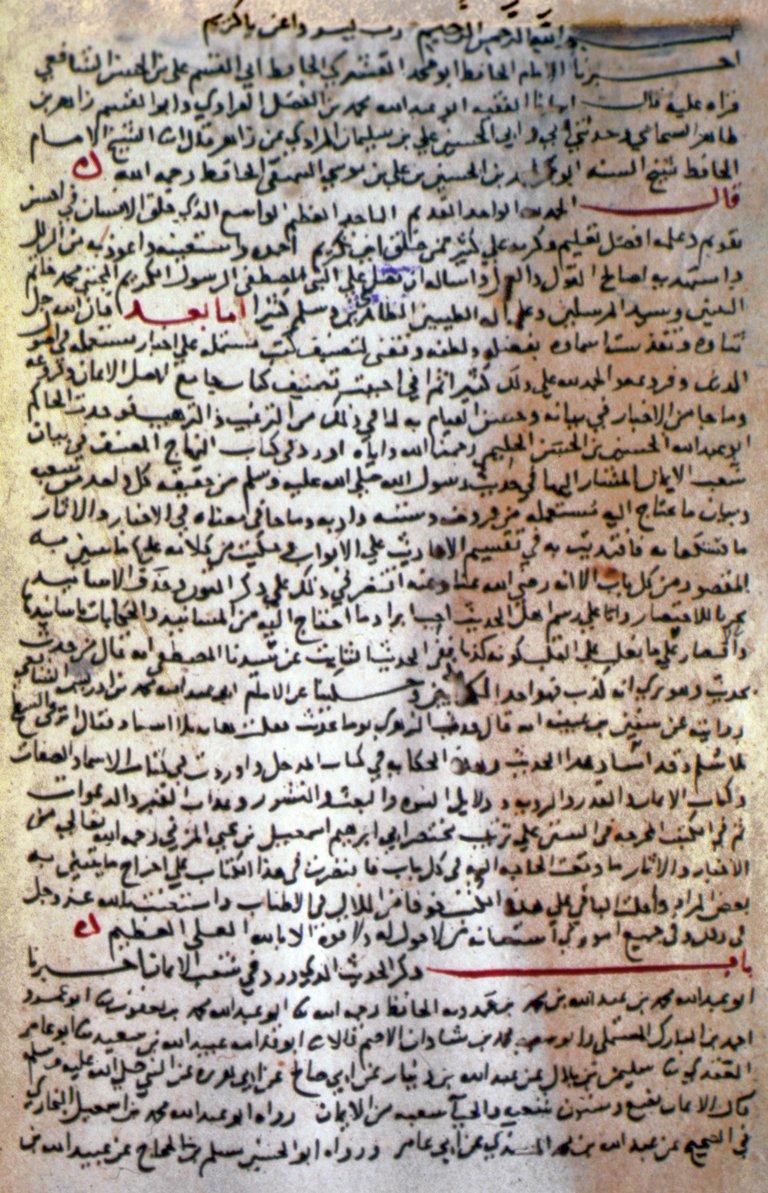 بسم الله الرحمن الرحيم رب يسر واعن يا كريم
اخبرنا الامام الحافظ ابو محمد القسم بن الحافظ ابي القسم علي بن الحسن الشافعي
قراه عليه قال انبانا الفقيه ابو عبدالله محمد بن الفضل الفراوي وابو القسم زاهر بن
طاهر الشحامي وحدثني ابي وابو الحسن علي بن سليمان المرادي عن زاهر قالا انا الشيخ الامام
الحافظ شيخ السنه ابو بكر احمد بن الحسين بن علي بن موسى البيهقي الحافظ رحمه الله
قال الحمد لله الواحد القديم الماجد العظيم الواسع الذي خلق الانسان في احسن
تقويم وعلمه افضل تعليم وكرمه على كثير ممن خلق ابين تكريم احمده واستعينه واعوذ به من الزلل
واستهديه لصالح القول والعمل واساله ان يصلي على النبي المصطفى الرسول الكريم المجتبى محمد خاتم
النبيين وسيد المرسلين وعلى اله الطيبين الطاهرين وسلم كثيرا اما بعد فان الله جل
ثناوه وتقدست اسماوه بفضله ولطفه وفقني لتصنيف كتب مشتمله على اخبار مستعمله في اصول
الدين وفروعه والحمد لله على ذلك كثيرا ثم اني احببت تصنيف كتاب جامع لاصل الايمان وفروعه
وما جا من الاخبار في بيانه وحسن القيام به لما في ذلك من الترغيب والترهيب فوجدت الحاكم
ابو عبدالله الحسين بن الحسن الحليمي رحمنا الله واياه اورد في كتاب المنهاج المصنف في بيان
شعب الايمان المشار اليها في حديث رسول الله صلى الله عليه وسلم من حقيقه كل واحده من شعبه
وبيان ما يحتاج اليه مستعمله من فروضه وسننه وادبه وما جا في معناه من الاخبار والاثار
ما فيه كفايه فاقتديت به في تقسيم الاحاديث على الابواب وحكيت من كلامه عليها ما تبين به
المقصود من كل باب الا انه رضي الله عنا وعنه اقتصر في ذلك على ذكر المتون وحذف الاسانيد
تحريا للاختصار وانا على رسم اهل الحديث احب ايراد ما احتاج اليه من المسانيد والحكايات باسانيدها
والاقتصار على ما يغلب على القلب كونه كذبا ففي الحديث الثابت عن سيدنا المصطفى انه قال من حدث
بحديث وهو يرى انه كذب فهو احد الكاذبين وحكينا عن الامام ابي عبدالله محمد بن ادريس الشافعي
روايته عن سفين بن عيينه انه قال حدث الزهري يوما بحديث فقلت هاته بلا اسناد فقال اترقى السطح
بلا سلم وقد اسناد هذا الحديث وهذه الحكايه في كتاب المدخل واوردت في كتاب الاسماء والصفات
وكتاب الايمان والقدر والرويه ودلايل النبوه والبعث والنشور وعذاب القبر والدعوات
ثم في الكتب المخرجه في السنن على ترتيب مختصر ابي ابرهيم اسمعيل بن يحيى المزني رحمه الله تعالى من
الاخبار والاثار ما وقعت الحاجه اليه في كل باب فاقتصرت في هذا الكتاب على اخراج ما يتبين به
بعض المراد واحلت الباقي على هذه الكتب خوفا من الملال في الاطناب واستعنت بالله عز وجل
في ذلك وفي جميع اموري استعانه من لا حول له ولا قوه الا بالله العلي العظيم
باب ذكر الحديث الذي ورد في شعب الايمان اخبرنا
ابو عبدالله محمد بن عبدالله بن محمد بن حمدويه الحافظ رحمه الله نا ابو عبدالله محمد بن يعقوب نا ابو عمرو
احمد بن المبارك المستملي وابو سعيد محمد بن شاذان الاصم قالا نا ابو قدامه عبيدالله بن سعيد نا ابو عامر
العقدي نا سليمن بن بلال عن عبدالله بن دينار عن ابي صالح عن ابي هريره عن النبي صلى الله عليه وسلم
قال الايمان بضع وستون شعبه والحيا شعبه من الايمان رواه ابو عبدالله محمد بن اسمعيل البخاري
في الصحيح عن عبدالله بن محمد المسندي عن ابي عامر ورواه ابو الحسين مسلم بن الحجاج عن عبيدالله بن